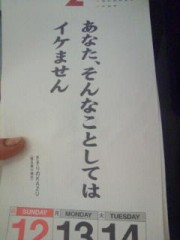 あなた、そんなことしては
イケません
SUNDAY
MONDAY
TUESDAY
12
13
14